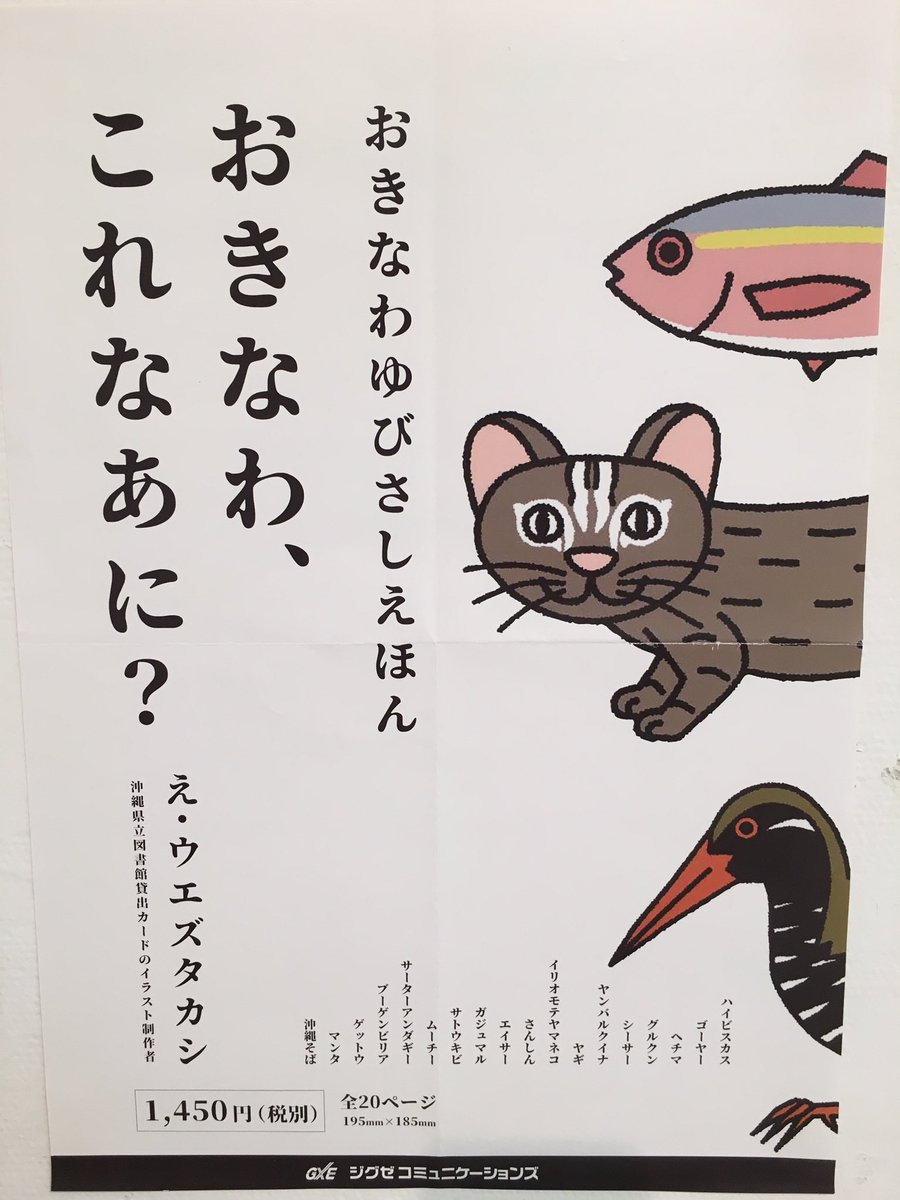 おきなわゆびさしえほん
おきなわ、
これなあに?
え・ウエズタカシ
沖縄県立図書館貸出カードのイラスト制作者
ハイビスカス
ゴーヤー
ヘチマ
グルクン
シーサー
ヤンバルクイナ
ヤギ
イリオモテヤマネコ
さんしん
エイサー
ガジュマル
サトウキビ
ムーチー
サーターアンダギー
ブーゲンビリア
ゲットウ
マンタ
沖縄そば
1,450円(税別)
全20ページ
195mm×185mm
GXE ジグゼコミュニケーションズ